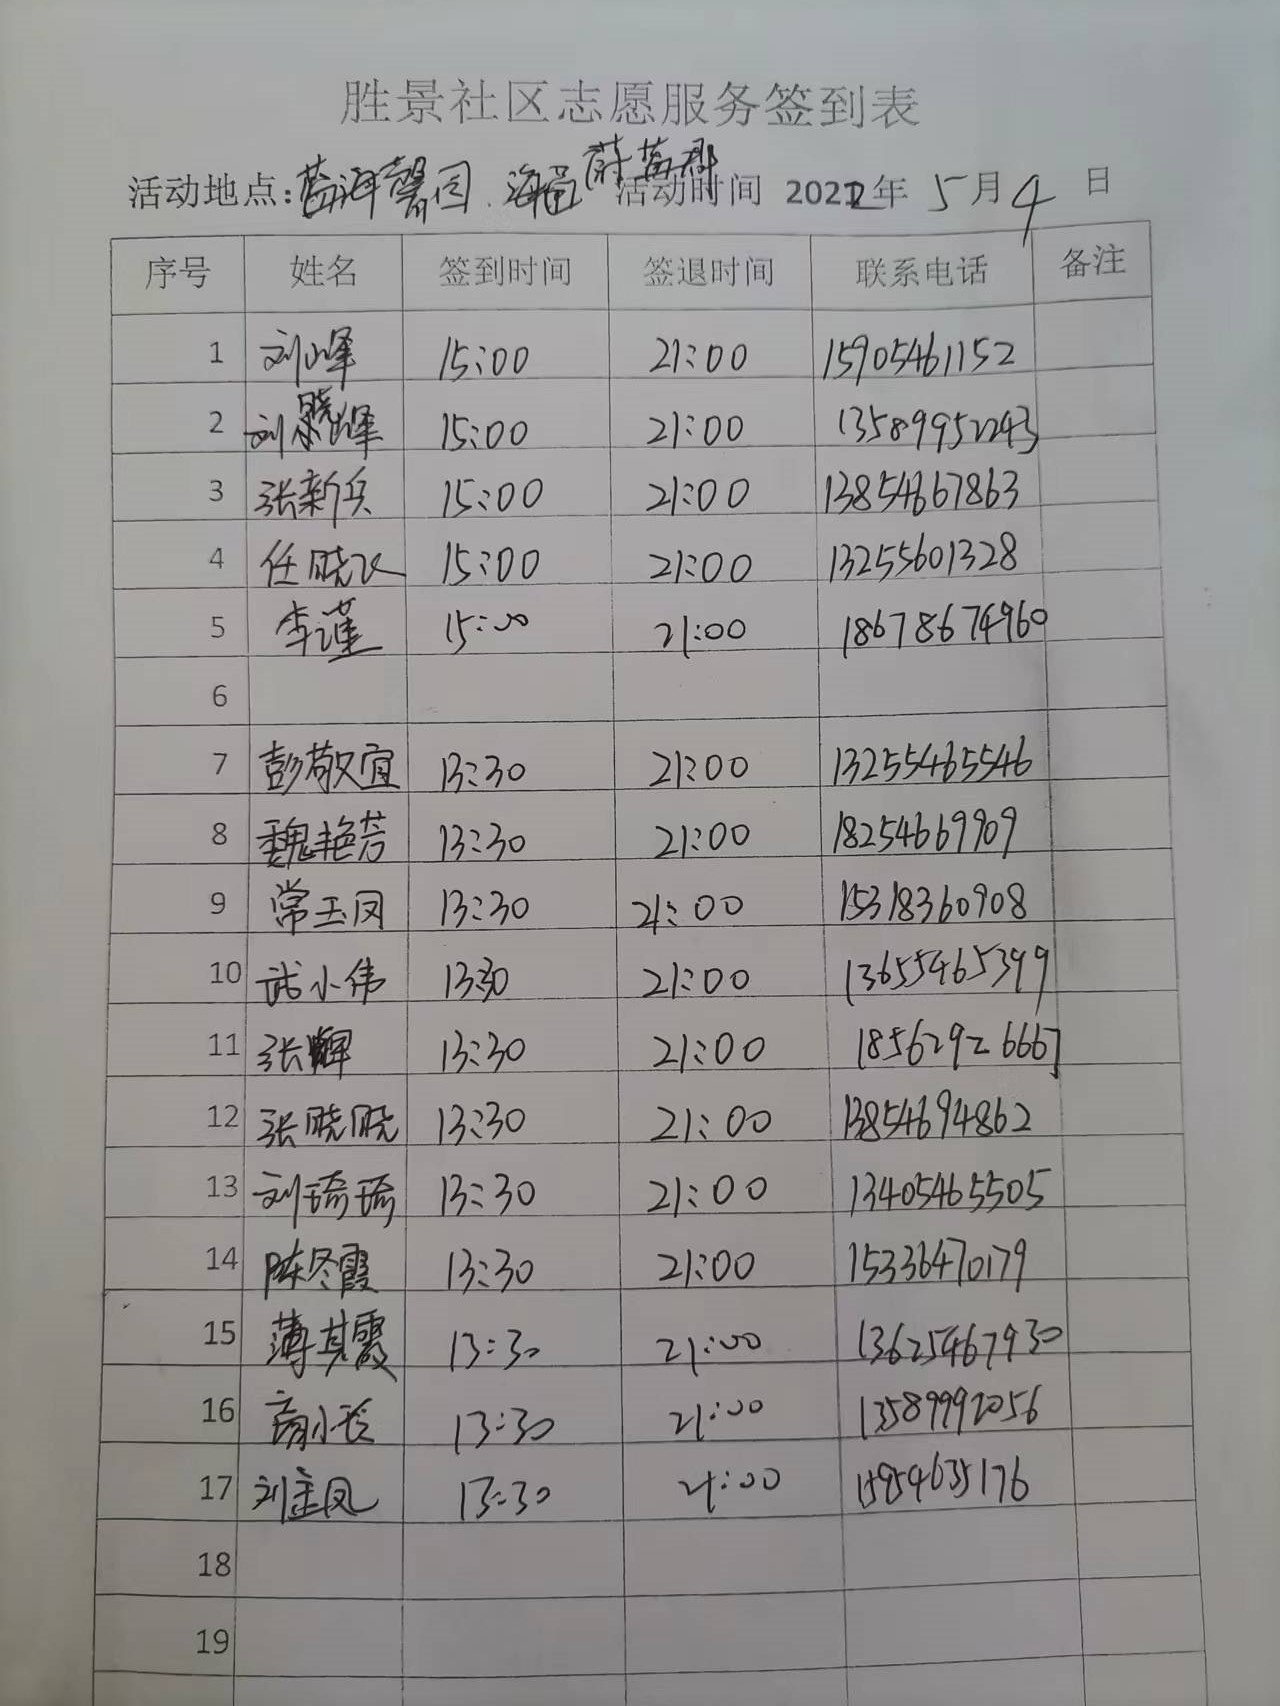 胜景社区志愿服务签到表
活动地点: 活动时间 2022年 5月4日
序号 姓名 签到时间 签退时间 联系电话 备注
1 刘峰 15:00 21:00 15905461152
2 刘晓峰 15:00 21:00 13589952243
3 张新兵 15:00 21:00 13854667863
4 任晓飞 15:00 21:00 13255601328
5 李谨 15:00 21:00 18678674960
6
7 彭敬宜 13:30 21:00 13255465546
8 魏艳芳 13:30 21:00 18254669909
9 常玉凤 13:30 21:00 15318360908
10 武小伟 13:30 21:00 13655465399
11 张辉 13:30 21:00 18562926667
12 张晓晓 13:30 21:00 13854694862
13 刘琦琦 13:30 21:00 13405465505
14 陈冬霞 13:30 21:00 15336470179
15 薄其霞 13:30 21:00 13625467930
16 13:30 21:00 13589992056
17 刘金凤 13:30 21:00 15954635176
18
19